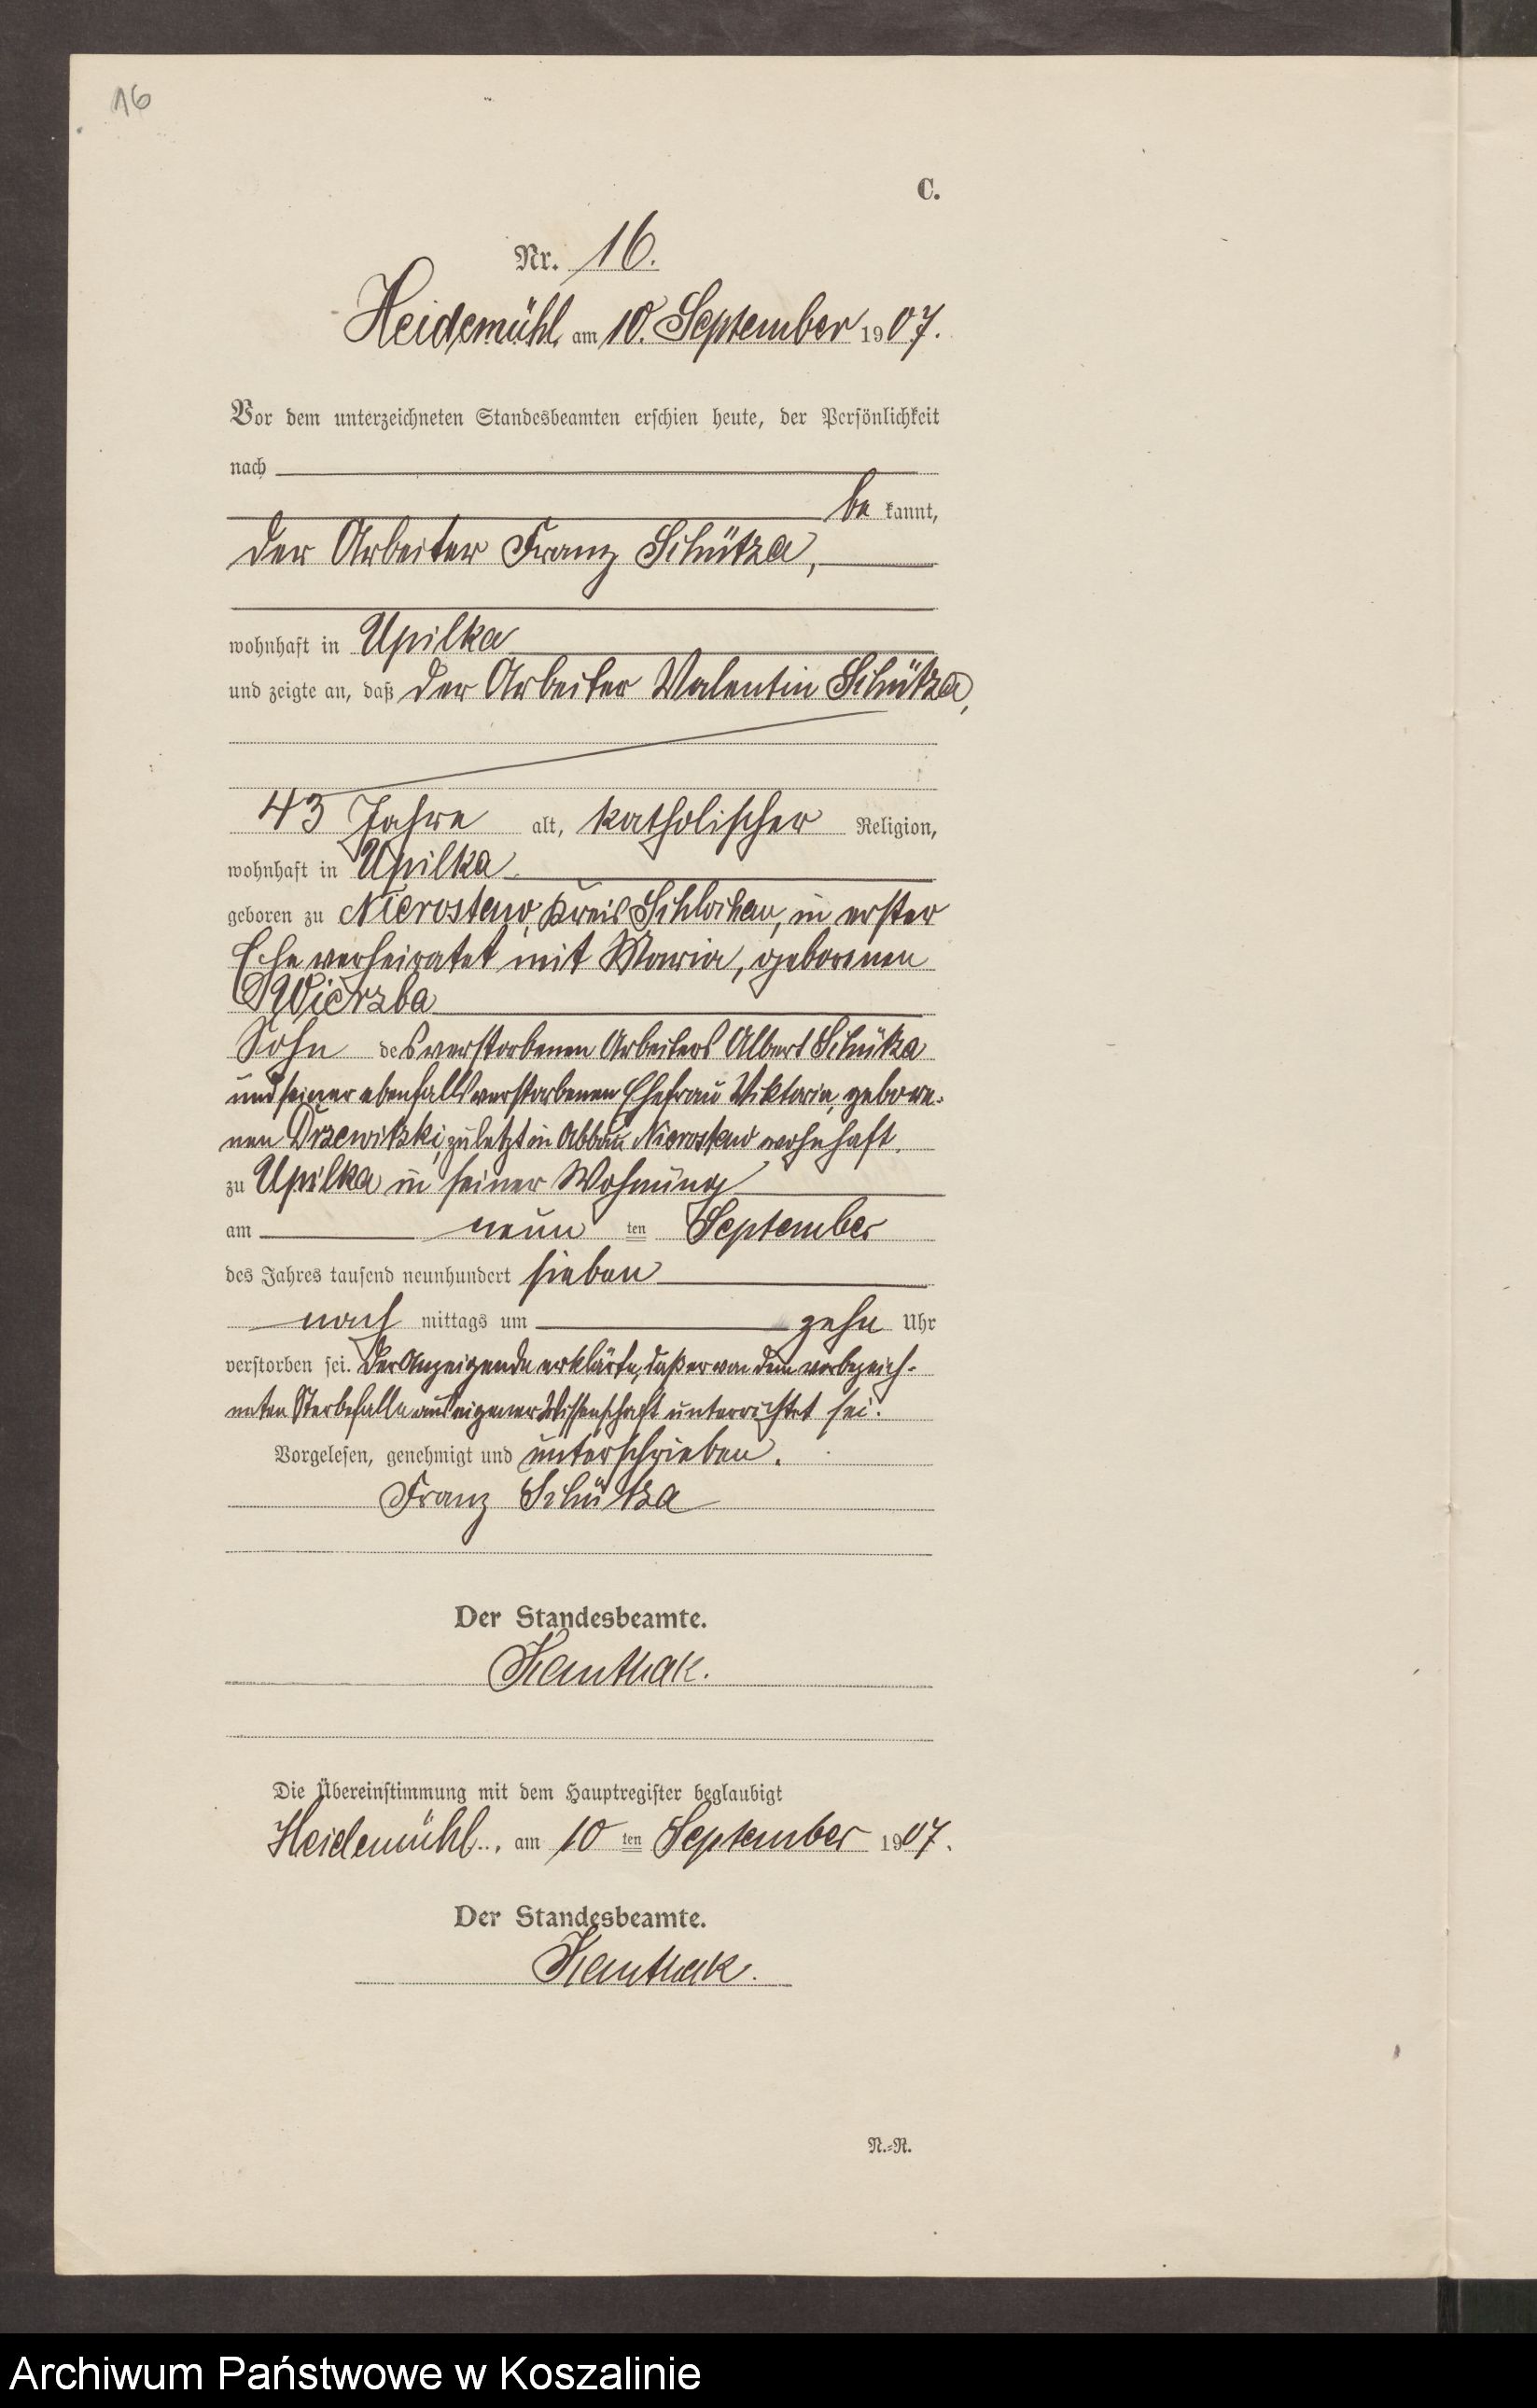 16
C.
Nr. 16.
Heidemühl, am 10. September 1907.
Vor dem unterzeichneten Standesbeamten erschien heute, der Persönlichkeit
nach
be kannt,
der Arbeiter Franz Schütza,
wohnhaft in Upilka
und zeigte an, daß der Arbeiter Valentin Schütza,
43 Jahre alt, katholischer Religion,
wohnhaft in Upilka
geboren zu Nierostaw, Kreis Schlochau, in erster
Ehe verheiratet mit Maria, geborenen
Wierzba
Sohn des verstorbenen Arbeiters Albert Schütza
und seiner ebenfalls verstorbenen Ehefrau Viktoria, gebore-
nen Drzewitzki, zuletzt in Abbau Nierostaw wohnhaft.
zu Upilka in seiner Wohnung
am neun ten September
des Jahres tausend neunhundert sieben
nach mittags um zehn Uhr
verstorben sei. Der Anzeigende erklärte, daß er von dem vorbezeich-
neten Sterbefalle aus eigener Wissenschaft unterrichtet sei.
Vorgelesen, genehmigt und unterschrieben.
Franz Schütza
Der Standesbeamte.
Die Übereinstimmung mit dem Hauptregister beglaubigt
Heidemühl, am 10 ten September 1907.
Der Standesbeamte.
N.-R.
Archiwum Państwowe w Koszalinie